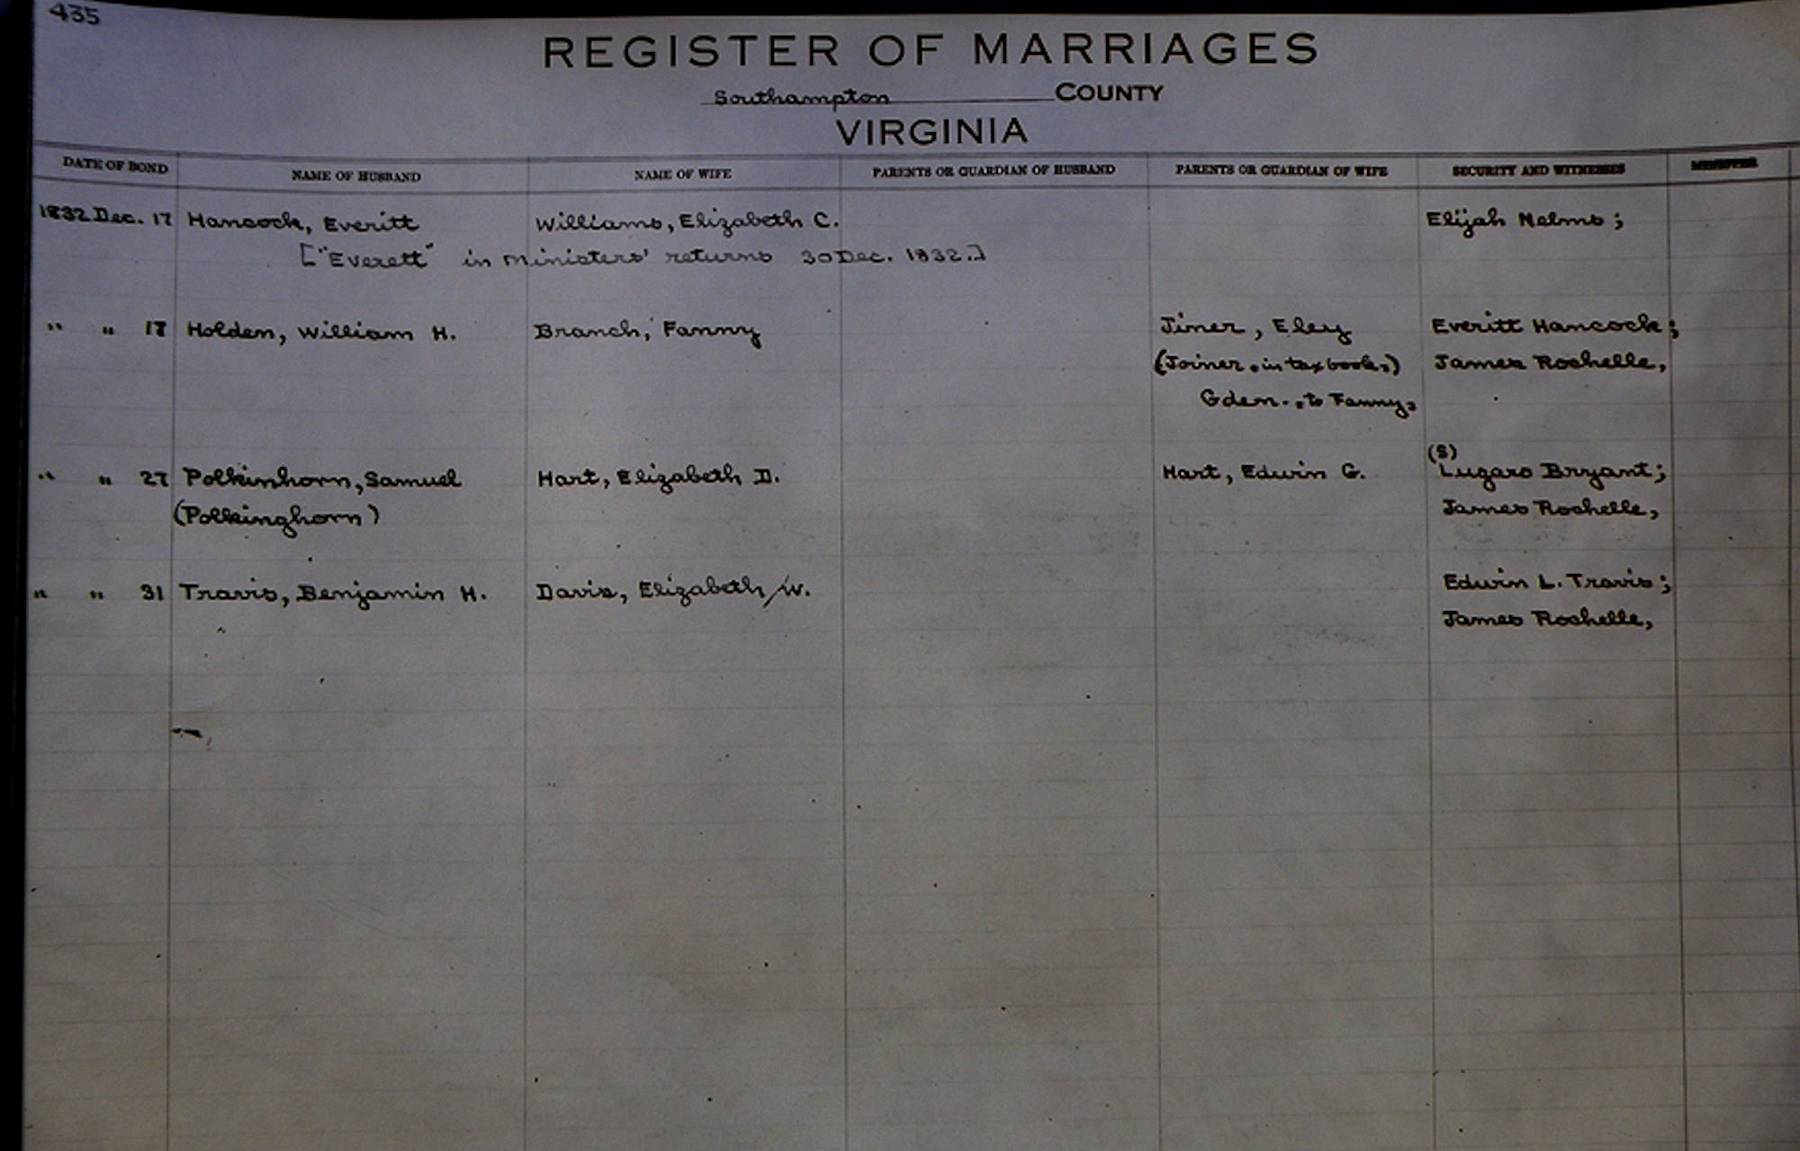 435
REGISTER OF MARRIAGES
Southampton COUNTY
VIRGINIA
DATE OF BOND NAME OF HUSBAND NAME OF WIFE PARENTS OR GUARDIAN OF HUSBAND PARENTS OR GUARDIAN OF WIFE SECURITY AND WITNESSES MINISTER
1832 Dec. 17 Hancock, Everitt Williams, Elizabeth C. Elijah Nelms;
["Everett" in ministers' returns 30 Dec. 1832.]
" " 17 Holden, William H. Branch, Fanny Jiner, Eley Everitt Hancock;
(Joiner, in tax books,) James Rochelle,
Gden. to Fanny,
(S)
" " 27 Polkinhorn, Samuel Hart, Elizabeth D. Hart, Edwin G. Lugaro Bryant;
(Polkinghorn) James Rochelle,
" " 31 Travis, Benjamin H. Davis, Elizabeth W. Edwin L. Travis;
James Rochelle,